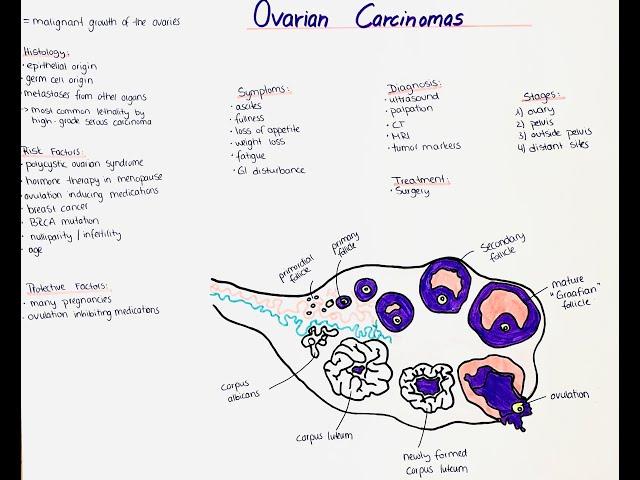 Ovarian Carcinomas
= malignant growth of the ovaries
Histology:
· epithelial origin
· germ cell origin
· metastases from other organs
-> most common lethality by
high-grade serous carcinoma
Risk Factors:
· polycystic ovarian syndrome
· hormone therapy in menopause
· ovulation inducing medications
· breast cancer
· BRCA mutation
· nulliparity / infertility
· age
Protective Factors:
· many pregnancies
· ovulation inhibiting medications
Symptoms:
· ascites
· fullness
· loss of appetite
· weight loss
· fatigue
· GI disturbance
Diagnosis:
· ultrasound
· palpation
· CT
· MRI
· tumor markers
Treatment:
· Surgery
Stages:
1) ovary
2) pelvis
3) outside pelvis
4) distant sites
primordial
follicle
primary
follicle
secondary
follicle
mature
"Graafian"
follicle
ovulation
newly formed
corpus luteum
corpus luteum
corpus
albicans